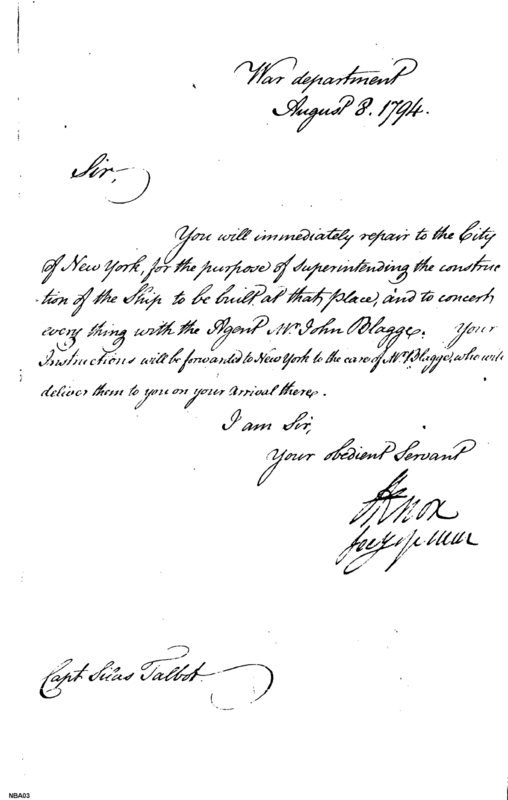 War department
August 8. 1794.
Sir,
You will immediately repair to the City
of New York, for the purpose of superintending the construc
-tion of the Ship to be built at that place, and to concert
every thing with the Agent Mr. John Blagge. Your
Instructions will be forwarded to New York to the care of Mr. Blagge, who will
deliver them to you on your arrival there.
I am Sir,
Your obedient Servant
HKnox
Secy of War
Capt Silas Talbot
NBA03